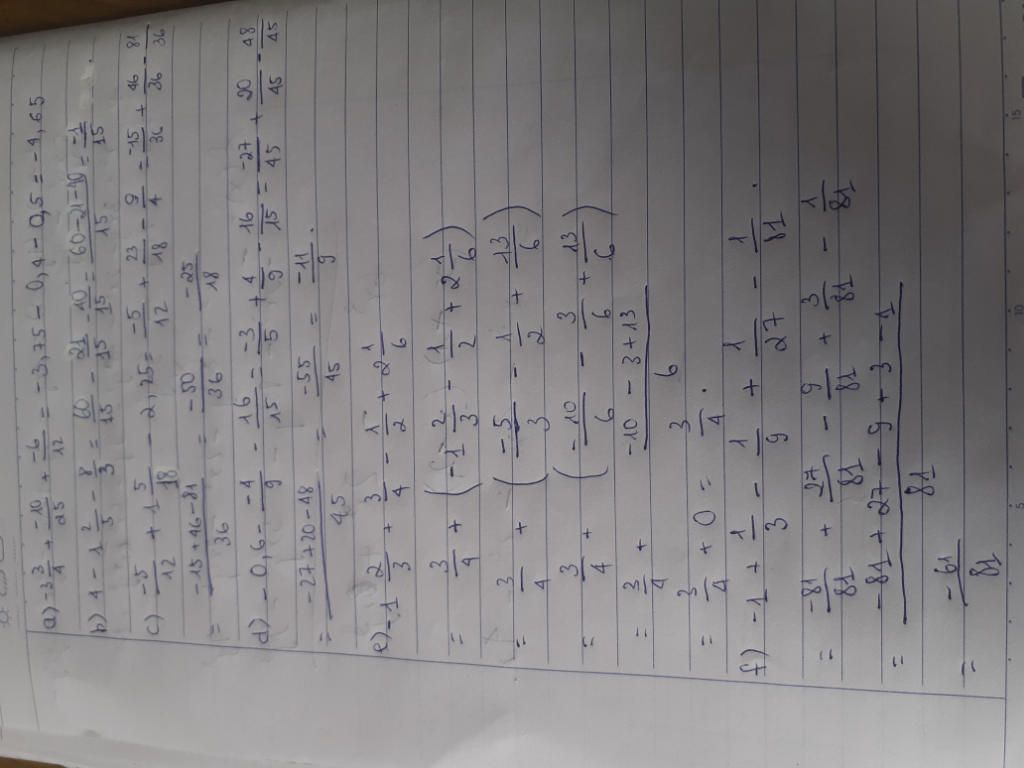 a) -3 3/4 + -10/25 + -6/12 = -3,75 - 0,4 - 0,5 = -4,65
b) 4 - 1 2/5 - 8/3 = 60/15 - 21/15 - 40/15 = 60-21-40/15 = -1/15
c) -5/12 + 1 5/18 - 2,25 = -5/12 + 23/18 - 9/4 = -15/36 + 46/36 - 81/36
= -15+46-81/36 = -50/36 = -25/18
d) -0,6 - -4/9 - 16/15 = -3/5 + 4/9 - 16/15 = -27/45 + 20/45 - 48/45
= -27+20-48/45 = -55/45 = -11/9.
e) -1 2/3 + 3/4 - 1/2 + 2 1/6
= 3/4 + (-1 2/3 - 1/2 + 2 1/6)
= 3/4 + (-5/3 - 1/2 + 13/6)
= 3/4 + (-10/6 - 3/6 + 13/6)
= 3/4 + -10 - 3 + 13/6
= 3/4 + 0 = 3/4.
f) -1 + 1/3 - 1/9 + 1/27 - 1/81.
= -81/81 + 27/81 - 9/81 + 3/81 - 1/81
= -81 + 27 - 9 + 3 - 1/81
= -61/81